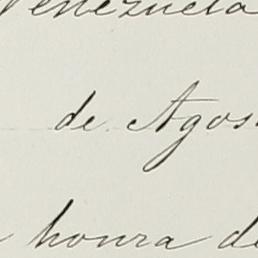 Venezuela
de Agos
honra de